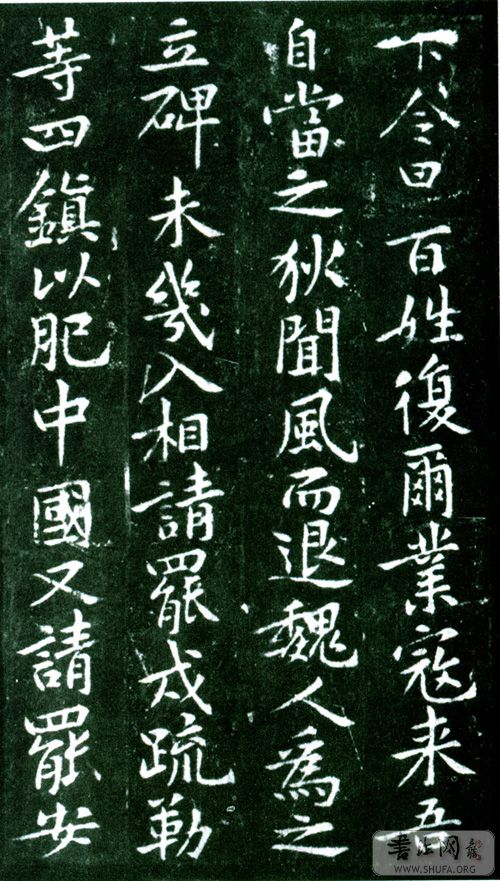 下令曰百姓復爾業寇来吾
自當之狄聞風而退魏人為之
立碑未幾入相請罷戍疏勒
等四鎮以肥中國又請罷安
書法网
WWW.SHUFA.ORG